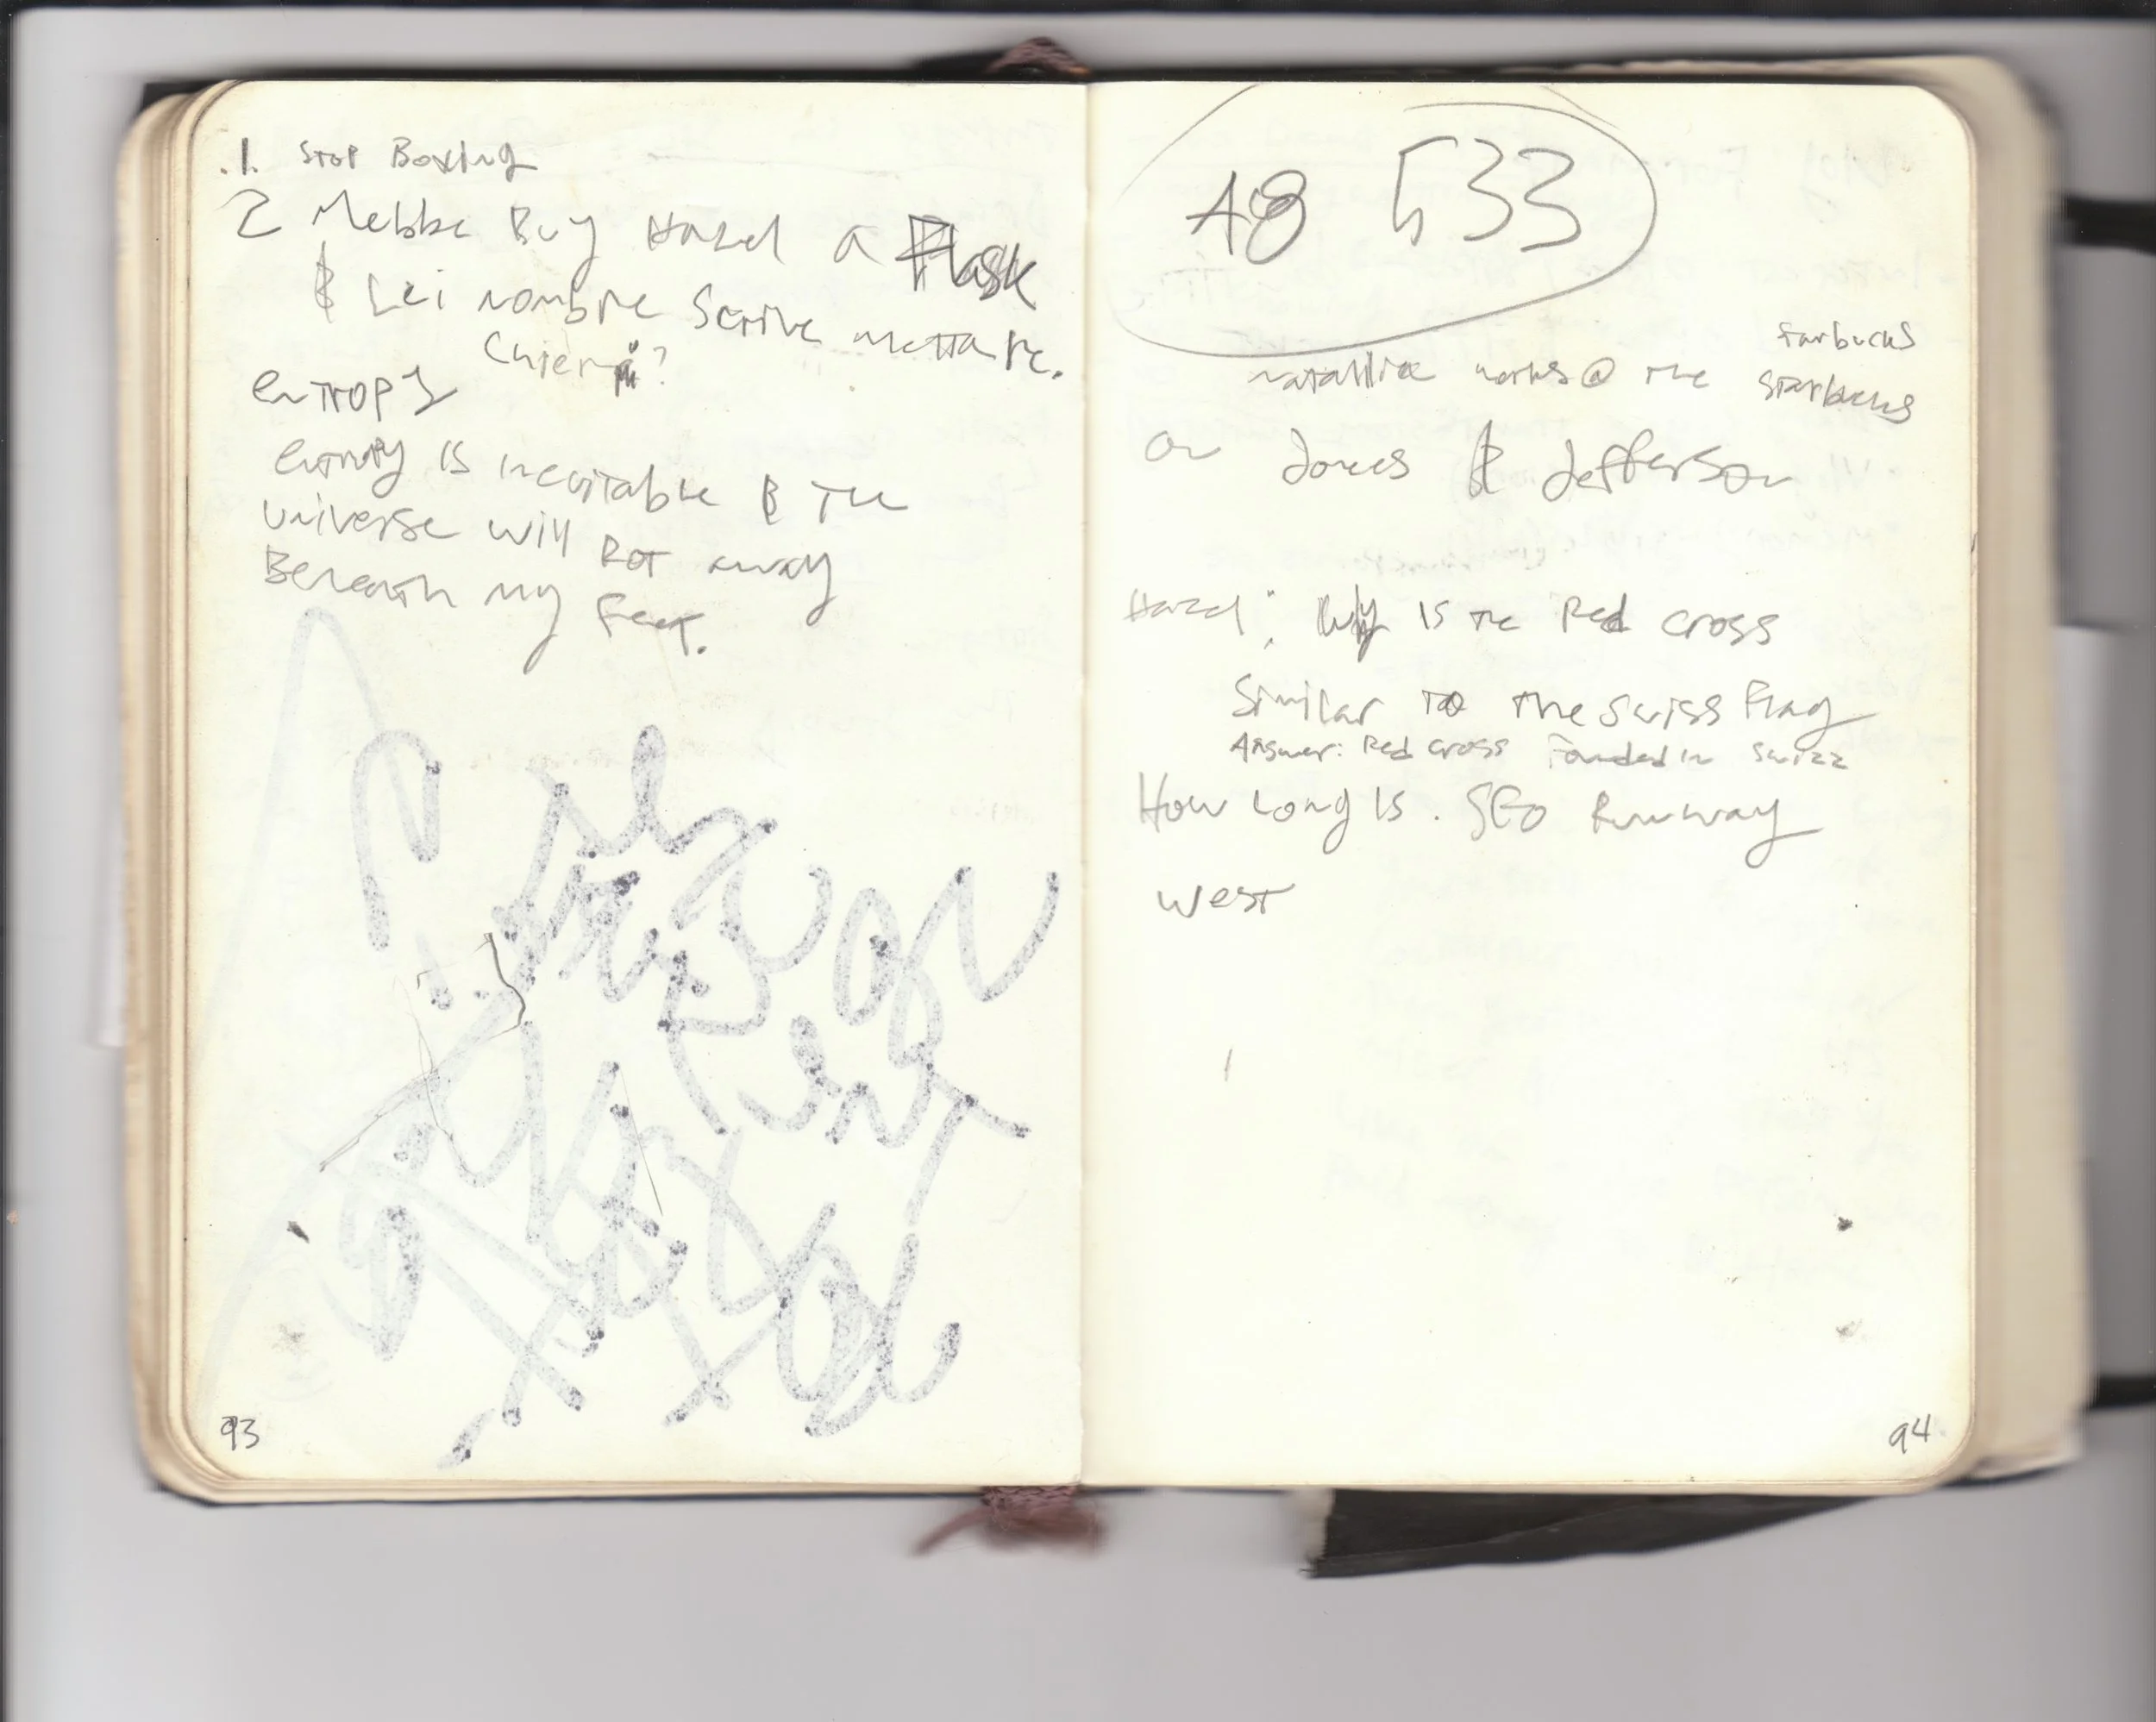 .1. STOP Boxing
2 Mebbe Buy Hazel a Flask
& Lei nombre Scrive mettare.
Chiem ?
Entropy
Entropy is inevitable & The
Universe will Rot away
Beneath my Feet.
93
A8 533
Natallie works @ The Starbucks
Starbucks
on Jones & Jefferson
Hazel: Why is the Red Cross
Similar to the Swiss Flag
Answer: Red Cross Founded in Swizz
How Long is . SFO Runway
West
94